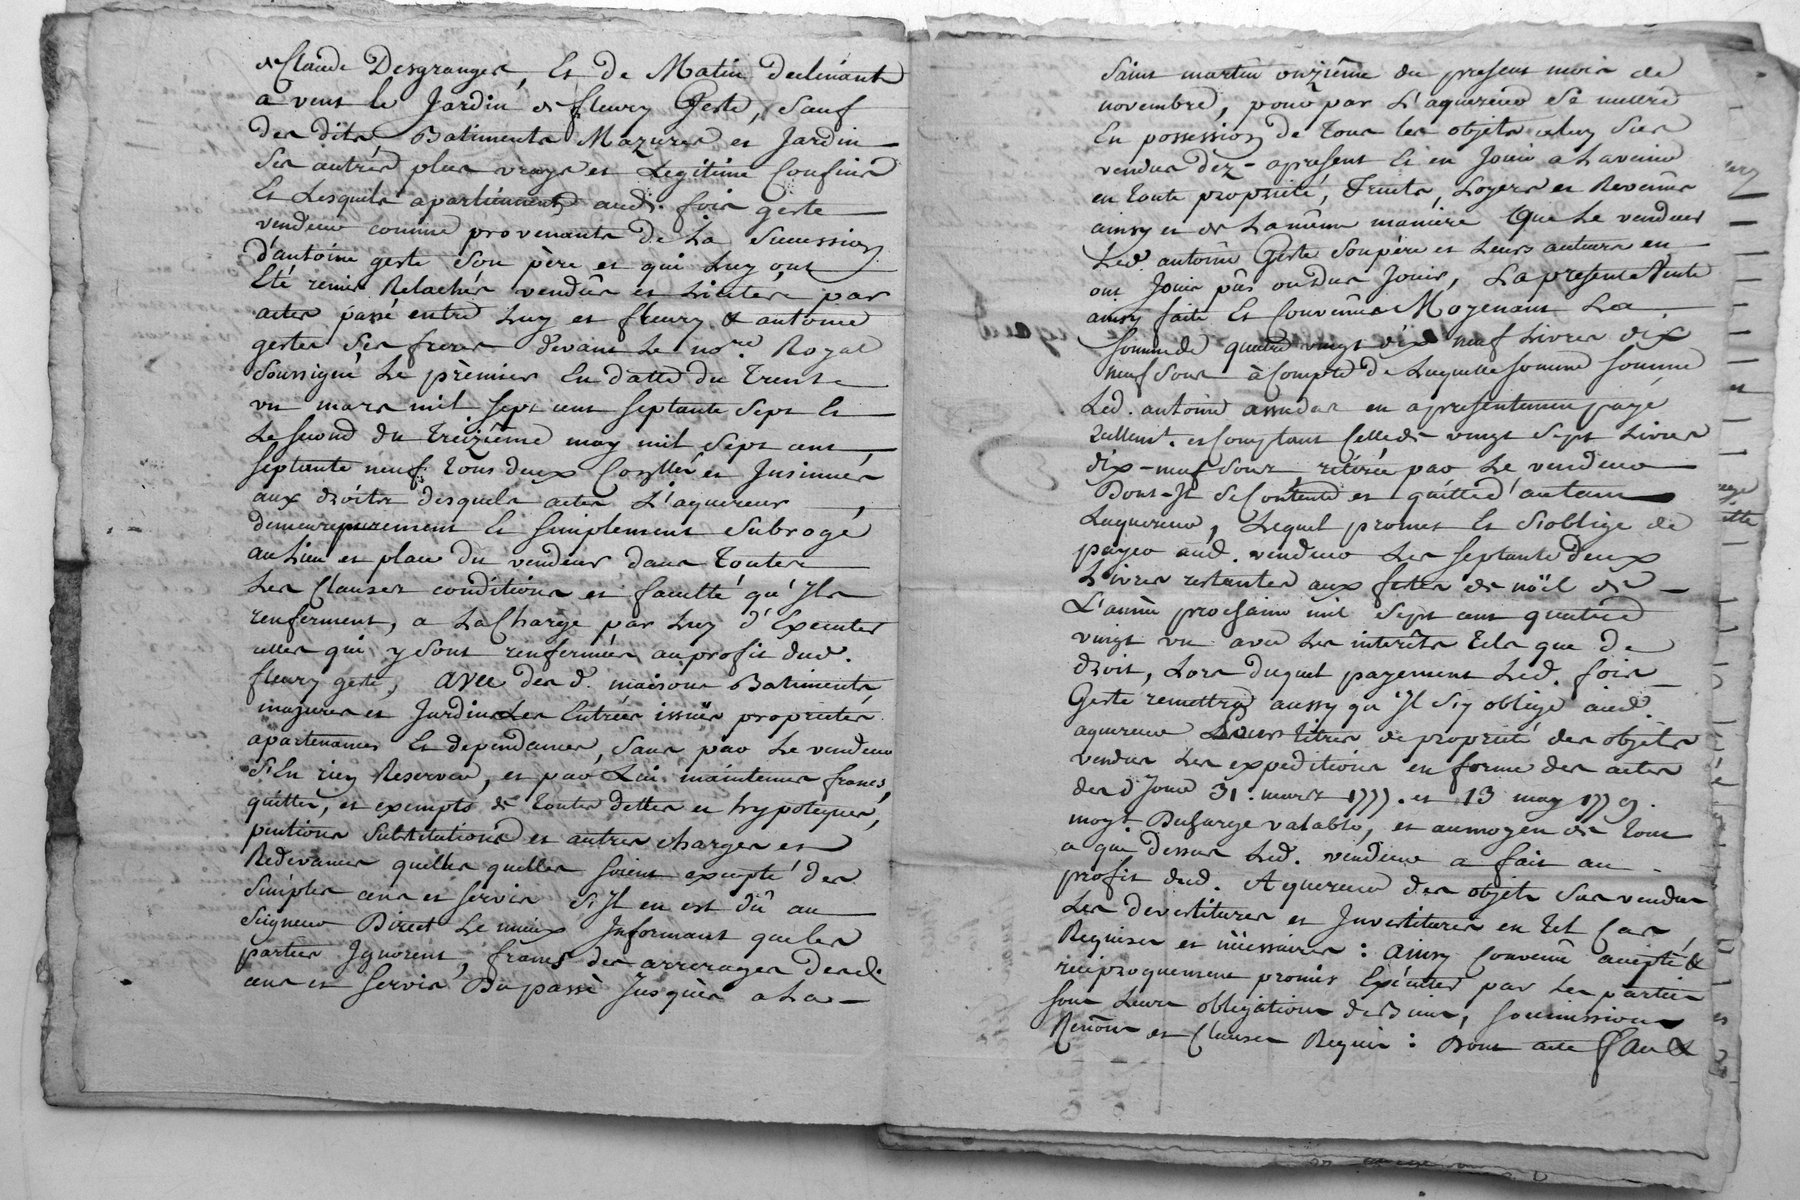 de Claude Desgranges, Et de Matin declinant
a vent le Jardin de fleury Geste, Sauf
des dits Batiments Mazures et Jardin
Ses autres plus vrays et Legitime Confins
Et Lesquels apartiennent aud. fois geste
vendeur comme provenants De La Succession
d'antoine geste Son père et qui Luy ont
Eté remis Relachés vendûs et Licités par
actes passé entre Luy et fleury & antoine
gestes Ses freres devant Le no.re Royal
Soussigné Le prèmier En datte du Trente
un mars mil Sept cent Septante Sept Et
Le second du Treizième may mil Sept cent
Septante neuf Tous deux Conllés et Insinués
aux droits desquels actes L'aquereur
demeure purement Et Simplement Subrogé
au Lieu et place du vendeur dans Toutes
Les Clauses conditions et faculté qu'Ils
renferment, a La Charge par Luy d'Executer
celles qui y Sont renfermées au profit dud.
fleury geste, avec des d. maisons Batiments
mazures et Jardins Les Entrées issües proprietés
apartenances Et dependances, Sans par Le vendeur
S'En rien Reserver, et par Lui maintenus francs,
quittes, et exempts de toutes dettes et hypoteques,
pentions Substitutions et autres charges et
Redevances quelles quelles Soient excepté des
Simples cens et Servis S'Il en est Dû au
Seigneur Direct Le mieux Informant que les
parties Ignorent, francs des arrerages desd.
cens et Servis Du passé Jusques a La
Saint martin onzième du present mois de
novembre, pour par L'aquereur Se mettre
En possession De Tous les objets a luy Sus
vendus dez-apresent Et en Jouir a Lavenir
en toute proprieté, Fruits, Loyers et Revenus
ainsy et de La même manière Que Le vendeur
Led. antoine Geste Son père et Leurs auteurs en
ont Joüis pûs ou Dus Jouir, La presente Vente
ainsy faite Et Convenüe Moyenant La
Somme de quatre vingt dix neuf Livres dix
neuf Sous à Compte De Laquelle Somme
Led. antoine en apresentement payé
Reellemt. et Comptant Celle de vingt Sept Livres
dix-neuf Sous retirée par Le vendeur
Dont-Il Se Contente et quitte d'autant
Laquereur, Lequel promet Et S'oblige de
payer aud. vendeur Les Septante deux
Livres restantes aux fetes de nöel de
L'année prochaine mil Sept cent quatre
vingt un avec Les interêts Tels que De
droit, Lors duquel payement Led. fois
Geste remettra aussy qu'Il S'y oblige aud.
aquereur Leurs Titres de proprieté des objets
vendus Les expeditions en forme des actes
des d Jour 31. mars 1777. et 13 may 1779.
moyt. Decharge valable, et au moyen de tout
a que dessus Led. vendeur a fait au
profit dud. Aquereur des objets Sus vendus
Les devestitures et Investitures en Tel Cas
Requises et nécessaires : Ainsy Convenû accepté &
réciproquement promis Exécuter par Les parties
Sous Leurs obligations de Biens, Soumissions
Renons et Clauses Requis : Dont acte fait &